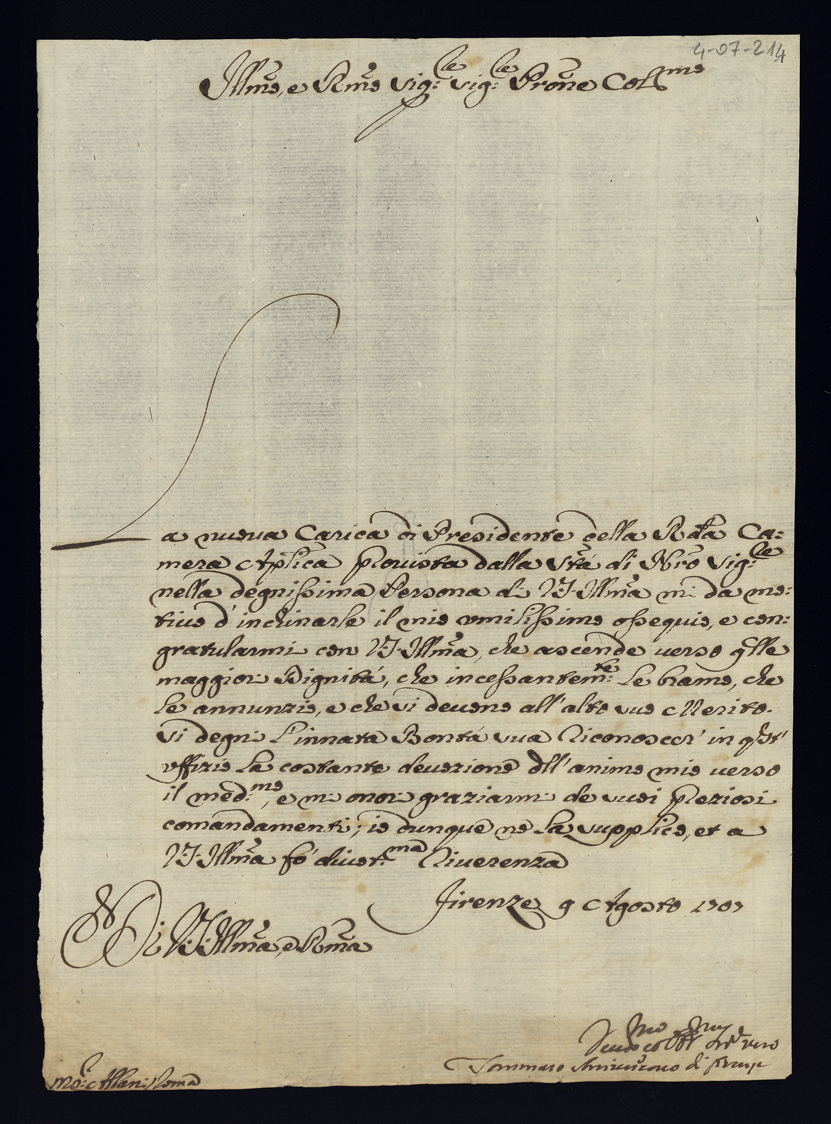 4-07-214
Illmo, e Rmo Sig:le Sig:le Prone Colmo
La nuova Carica di Presidente della Rda Ca:
mera Aplica provista dalla Stà di Nro Sig:le
nella degnissima Persona di VS Illma mi da mo:
tivo d'inchinarle il mio umilissimo ossequio, e con:
gratularmi con VS Illma, che ascende verso qlle
maggiori Dignità, che incessantemte le bramo, che
le annunzio, e che si devono all'alto suo Merito.
Si degni l'innata Bontà sua riconoscer' in qst'
uffizio la costante devozione dll'animo mio verso
il medmo, e mi onori graziarmi de suoi preziosi
comandamenti; io dunque ne la supplico, et a
VS Illma fo' divotma riverenza
Firenze 9 Agosto 1707
Di VS Illma, e Rma
Tommaso
Mor Albani Roma